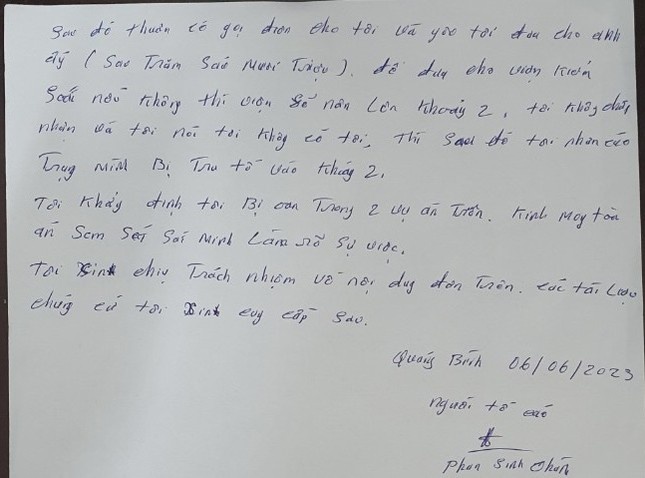 Sao đó thuân có gọi điơn cho tôi và yêo tôi đưa cho anh
ấy ( Sao Trăm Sáo Mươi Triệu ). để đưa cho viện Kiểm
Soái nếu Không thì viện Sẽ nân Lên Khoảy 2, tôi Không chấp
nhận và tôi nói tôi Không có tội, Thì Sau đó tôi nhận cáo
Trạng mình Bị Truy tố vào Khoảng 2.
Tôi Khẳng định tôi Bị oan Trong 2 vụ án Trên. Kính Mong tòa
án Sem Sét Sái Minh Làm rõ Sự việc.
Tôi Xint chịu Trách nhiệm về nội dung đơn Trên. các tài Liệu
chứng cứ tôi Xint cung cấp Sao.
Quảng Bình 06/06/2023
người tố cáo
Phan Sinh